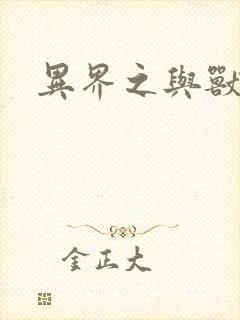 異界之與獸
金正大